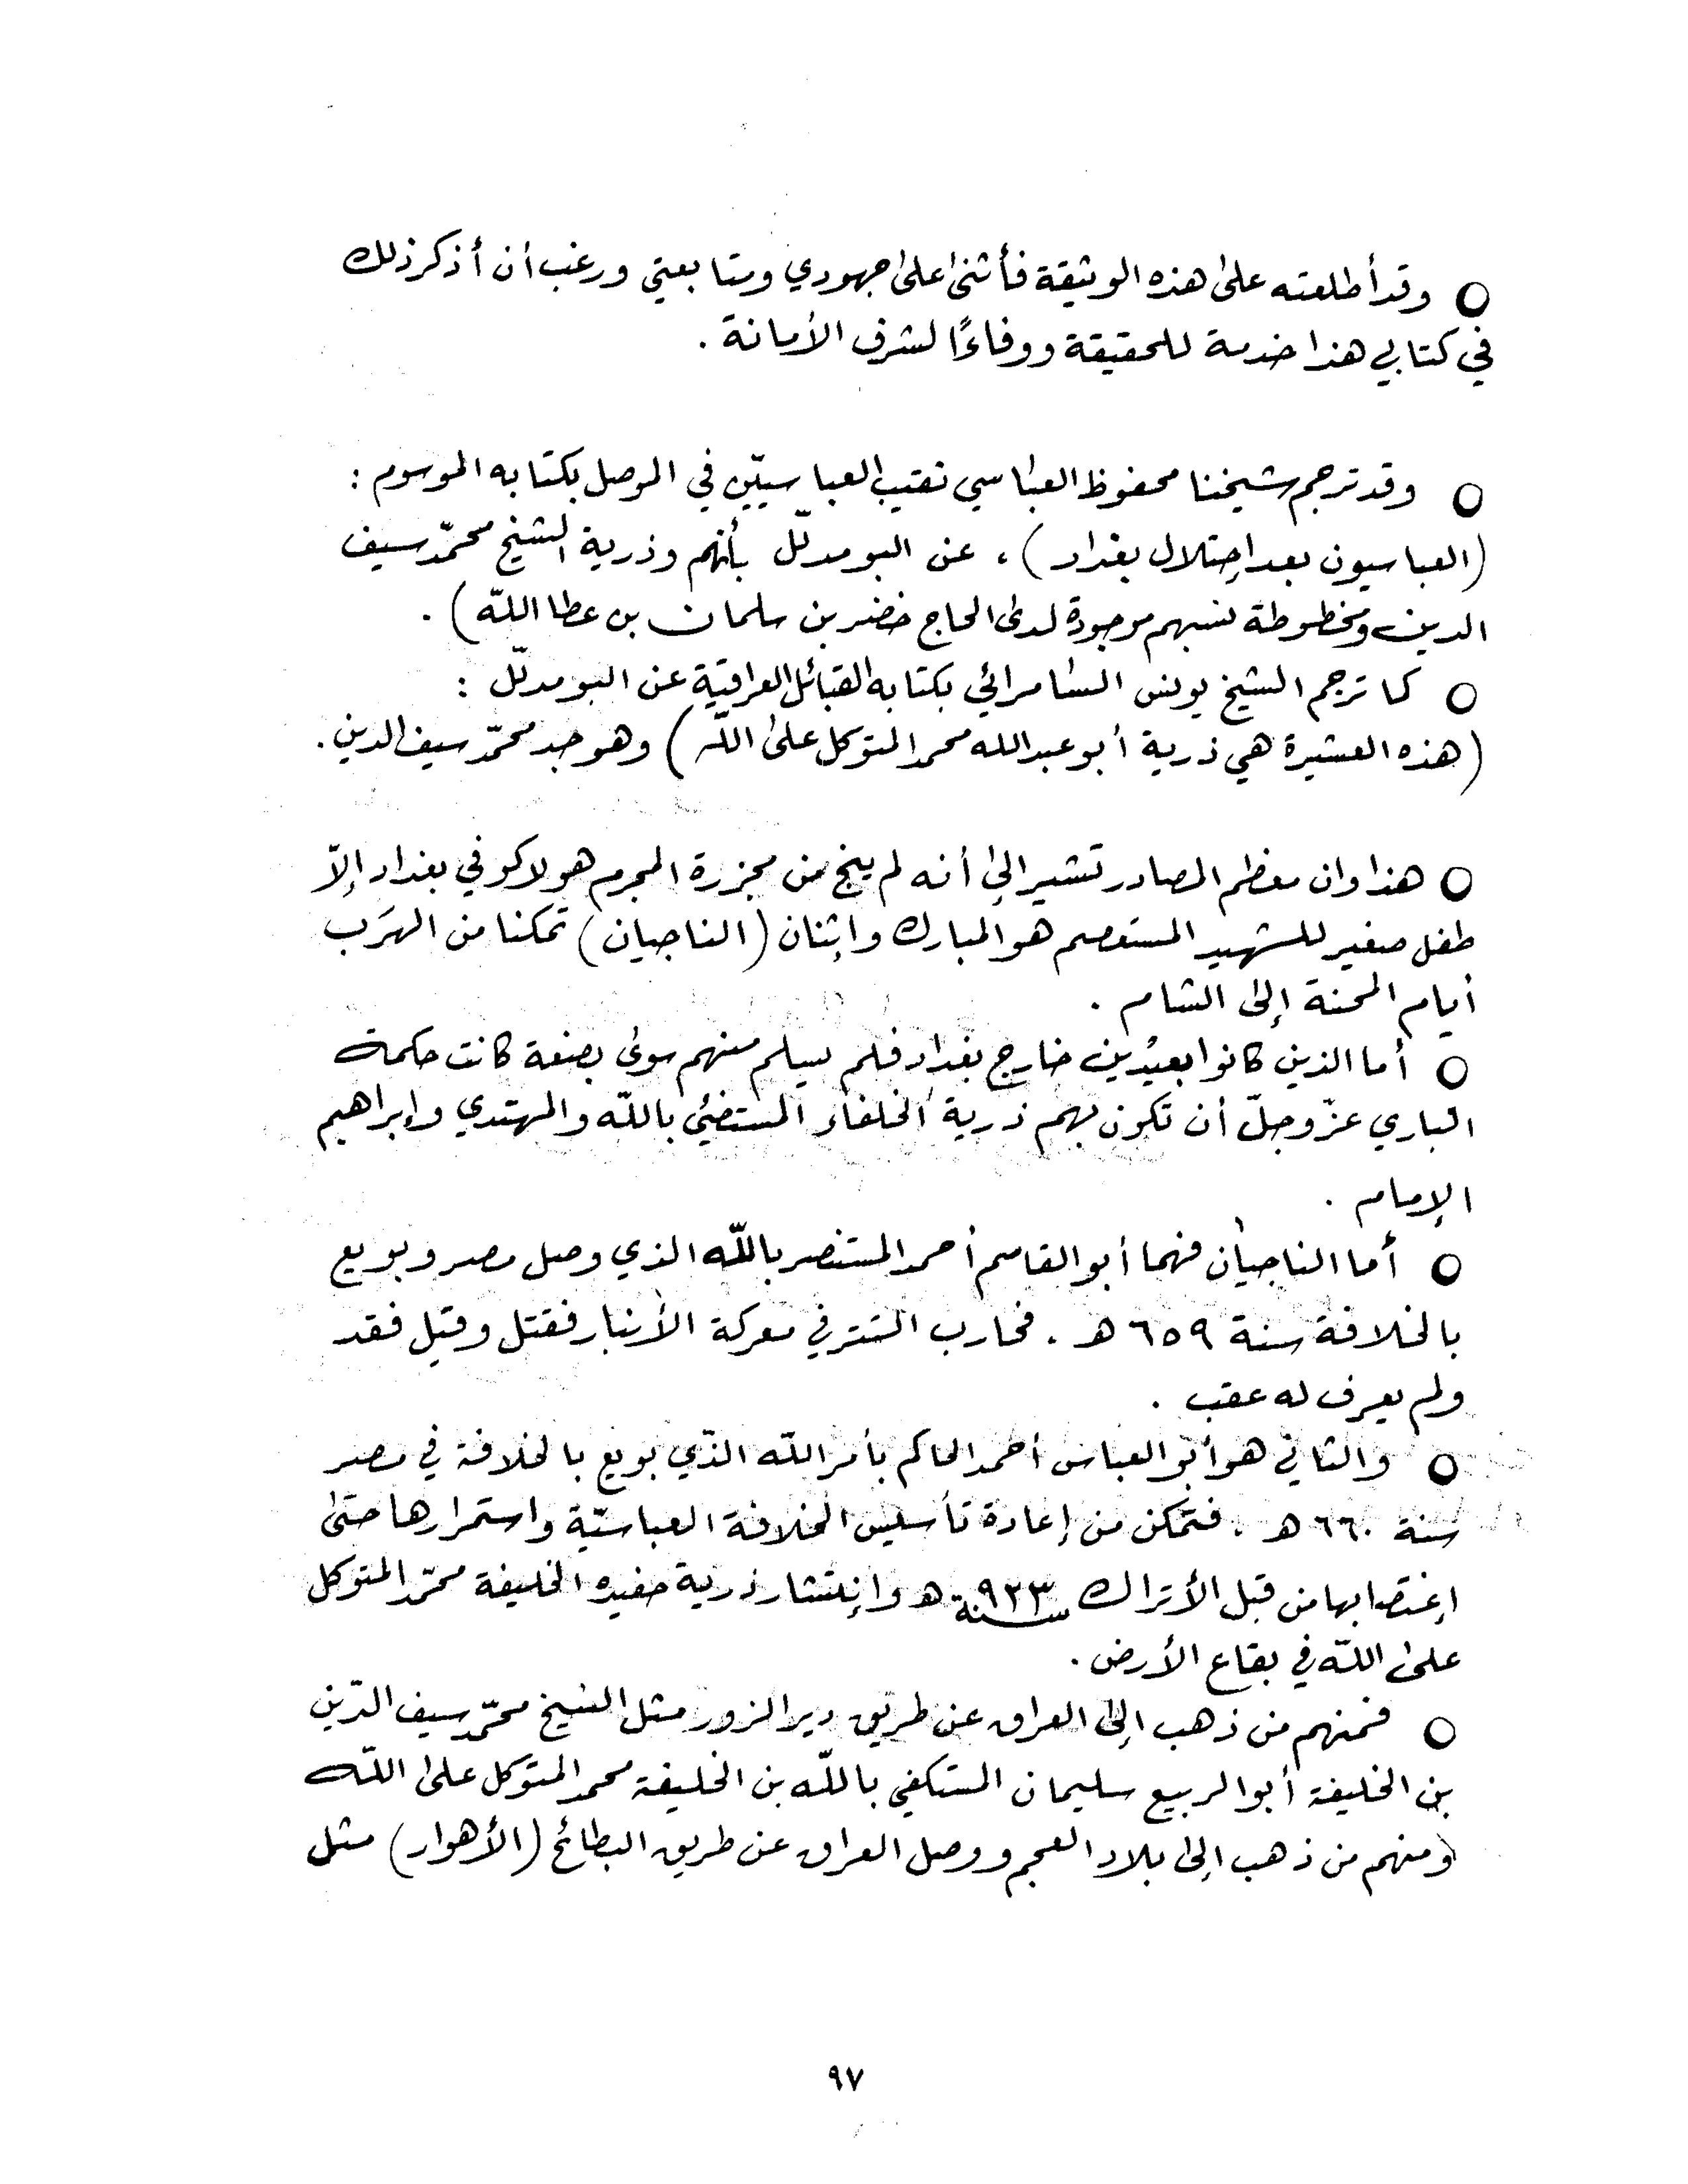 ○ وقد أطلعته على هذه الوثيقة فأثنى على جهودي ومتابعتي ورغب أن أذكر ذلك
في كتابي هذا خدمة للحقيقة ووفاءًا لشرف الأمانة .
○ وقد ترجم شيخنا محفوظ العباسي نقيب العباسيّين في الموصل بكتابه الموسوم :
(العباسيون بعد إحتلال بغداد) ، عن البو مدلّل بأنهم وذرية الشيخ محمّد سيف
الدين ومخطوطة نسبهم موجودة لدى الحاج خضر بن سلمان بن عطا اللّه) .
○ كما ترجم الشيخ يونس السامرائي بكتابه القبائل العراقيّة عن البو مدلّل :
(هذه العشيرة هي ذرية أبو عبدالله محمد المتوكل على اللّه) وهو جد محمّد سيف الدين .
○ هذا وان معظم المصادر تشير إلى أنه لم ينج من مجزرة المجرم هولاكو في بغداد إلاّ
طفل صغير للشهيد المستعصم هو المبارك وإثنان (الناجيان) تمكنا من الهرَب
أيام المحنة إلى الشام .
○ أما الذين كانوا بعيدين خارج بغداد فلم يسلم منهم سوى بضعة كانت حكمة
الباري عزّ وجلّ أن تكون بهم ذرية الخلفاء المستضيْ باللّه والمهتدي وإبراهيم
الإمام .
○ أما الناجيان فهما أبو القاسم أحمد المستنصر باللّه الذي وصل مصر وبويع
بالخلافة سنة ٦٥٩ هـ . فحارب التتر في معركة الأنبار فقتل وقيل فقد
ولم يعرف له عقب .
○ والثاني هو أبو العباس أحمد الحاكم بأمر اللّه الذّي بويع بالخلافة في مصر
سنة ٦٦٠ هـ . فتمكن من إعادة تأسيس الخلافة العباسيّة واستمرارها حتى
إغتصابها من قبل الأتراك سنة ٩٢٣ هـ وإنتشار ذرية حفيده الخليفة محمّد المتوكل
على اللّه في بقاع الأرض .
○ فمنهم من ذهب إلى العراق عن طريق دير الزور مثل الشيخ محمّد سيف الدّين
بن الخليفة أبو الربيع سليمان المستكفي باللّه بن الخليفة محمد المتوكل على اللّه
ومنهم من ذهب إلى بلاد العجم ووصل العراق عن طريق البطائح (الأهوار) مثل
٩٧